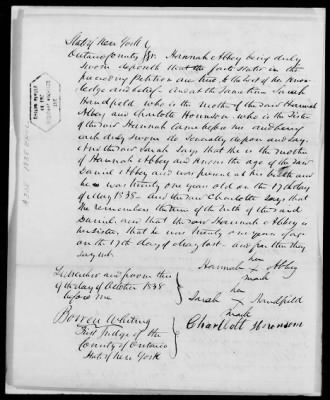 State of New York (
Ontario County ss. Hannah Abbey being duly
sworn deposeth that the facts stated in the
preceding Petition are true to the best of her know-
ledge and belief. And at the same time Sarah
Handfield who is the Mother of the said Hannah
Abbey and Charlotte who is the Sister
of the said Hannah Came before me and being
each duly sworn do severally depose and say.
And the said Sarah Says that she is the mother
of Hannah Abbey and knows the age of the said
Daniel Abbey and was present at his birth and
he was twenty one years old on the 17th day
of May 1838 - and the said Charlotte Says that
she remembers the time of the birth of the said
Daniel and that the said Hannah Abbey is
her sister, that he was twenty one years of age
on the 17th day of May last - and further they
say not.
her
Hannah x Abbey
mark
Subscribed and sworn this
day of October 1838
before me
her
Sarah x Handfield
mark
Charlott
Bowen Whiting
First Judge of the
County of Ontario
State of New York